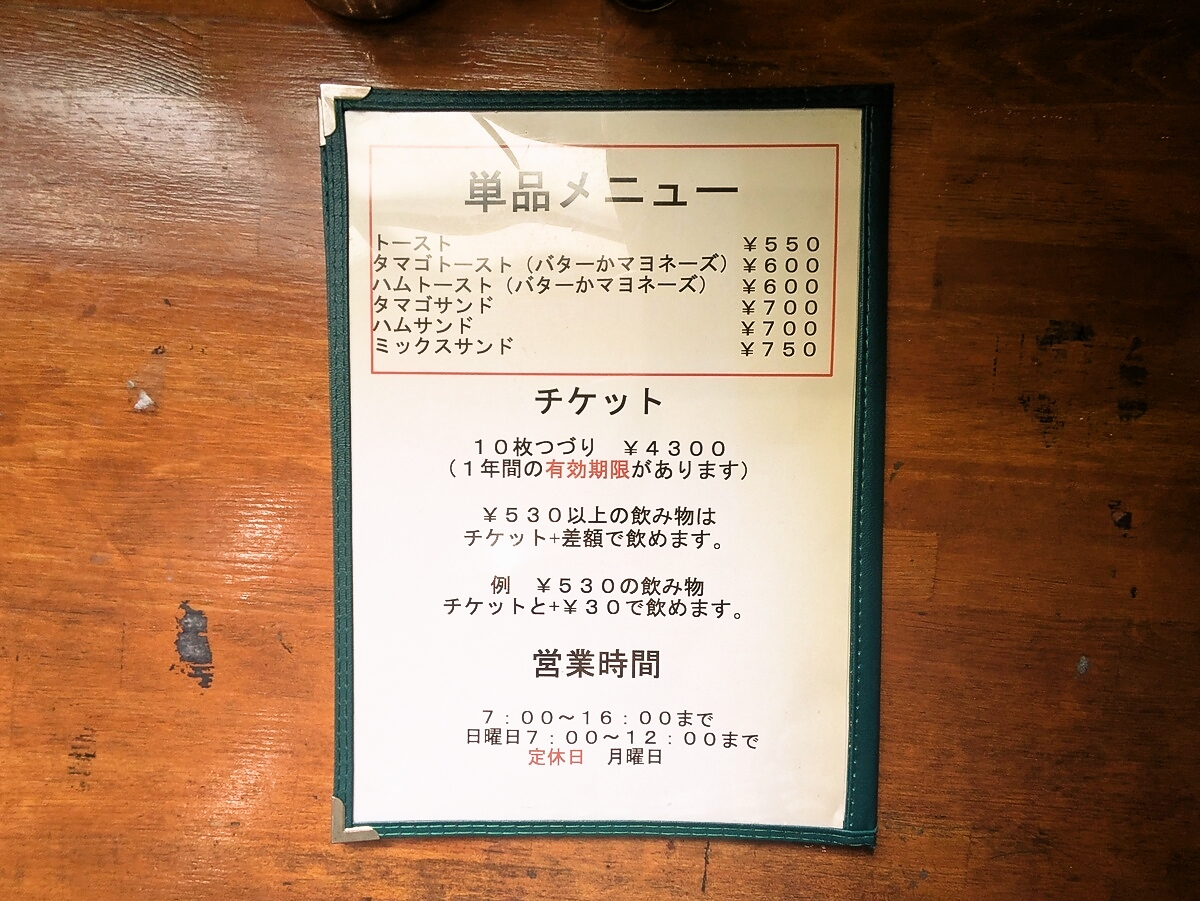 単品メニュー
トースト ￥５５０
タマゴトースト（バターかマヨネーズ） ￥６００
ハムトースト（バターかマヨネーズ） ￥６００
タマゴサンド ￥７００
ハムサンド ￥７００
ミックスサンド ￥７５０
チケット
１０枚つづり　￥４３００
（１年間の有効期限があります）
￥５３０以上の飲み物は
チケット+差額で飲めます。
例　￥５３０の飲み物
チケットと+￥３０で飲めます。
営業時間
７：００～１６：００まで
日曜日７：００～１２：００まで
定休日　月曜日